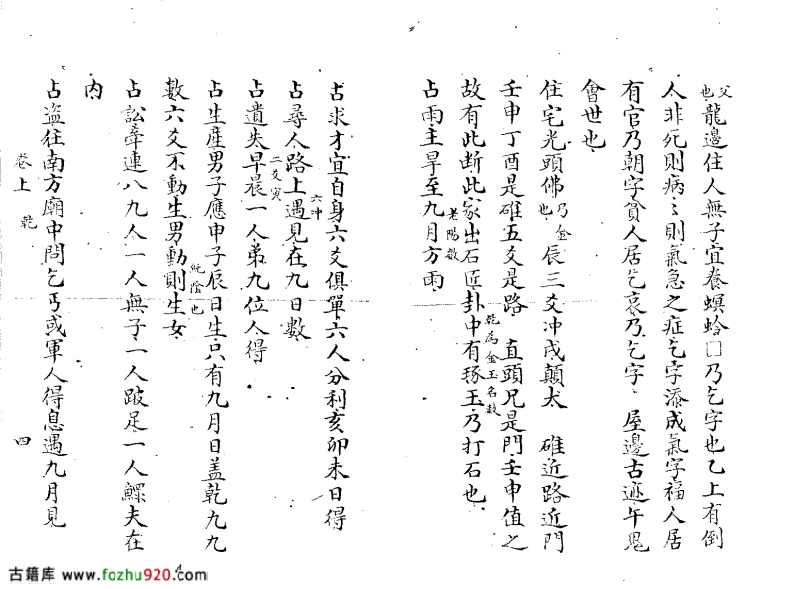 父也龍邊住人無子宜養螟蛉□乃乞字也乙上有倒
人非死則病〻則氣急之症乞字添成氣字福人居
有官乃朝字貧人居乞哀乃乞字 屋邊古迹午鬼
會世也
住宅光頭佛乃金也辰三爻冲戌顛犬 碓近路近門
壬申丁酉是碓五爻是路 直頭兄是門壬申值之
故有此断此家出石匠卦中有琢玉乃打石也
乾為金玉名数
老陽数
占雨主旱至九月方雨
占求才宜自身六爻俱單六人分利亥卯未日得
六冲
占尋人路上遇見在九日數
二爻寅
占遺失早晨一人弟九位人得
占生產男子應申子辰日生只有九月日盖乾九九
數六爻不動生男動則生女
純陰也
占訟牽連八九人一人無子一人跛足一人鰥夫在
内
占盗往南方廟中問乞丐或軍人得息遇九月見
卷上 乾 四
古籍库 www.fozhu920.com